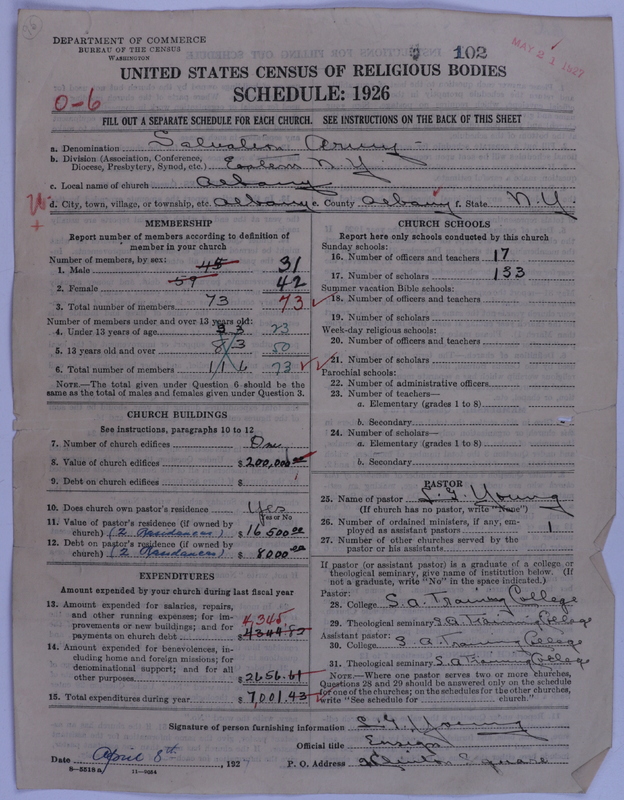 DEPARTMENT OF COMMERCE
BUREAU OF THE CENSUS
WASHINGTON
102
MAY 21 1927
UNITED STATES CENSUS OF RELIGIOUS BODIES
SCHEDULE: 1926
0-6
FILL OUT A SEPARATE SCHEDULE FOR EACH CHURCH. SEE INSTRUCTIONS ON THE BACK OF THIS SHEET
a. Denomination Salvation Army
b. Division (Association, Conference, Diocese, Presbytery, Synod, etc.) Eastern N.Y.
c. Local name of church Albany
d. City, town, village, or township, etc. Albany e. County Albany f. State N.Y.
MEMBERSHIP
Report number of members according to definition of
member in your church
Number of members, by sex:
1. Male 45 31
2. Female 59 42
3. Total number of members 73 73
Number of members under and over 13 years old:
4. Under 13 years of age 33 23
5. 13 years old and over 83 50
6. Total number of members 116 73
NOTE.—The total given under Question 6 should be the
same as the total of males and females given under Question 3.
CHURCH BUILDINGS
See instructions, paragraphs 10 to 12
7. Number of church edifices One
8. Value of church edifices $ 200,000.00
9. Debt on church edifices $
10. Does church own pastor's residence Yes
Yes or No
11. Value of pastor's residence (if owned by
church) (2 Residences) $ 16500.00
12. Debt on pastor's residence (if owned by
church) (2 Residences) $ 8000.00
EXPENDITURES
Amount expended by your church during last fiscal year
13. Amount expended for salaries, repairs,
and other running expenses; for im-
provements or new buildings; and for
payments on church debt 4,345. $ 4344.82
14. Amount expended for benevolences, in-
cluding home and foreign missions; for
denominational support; and for all
other purposes $ 2656.61
15. Total expenditures during year $ 7,001.43
CHURCH SCHOOLS
Report here only schools conducted by this church
Sunday schools:
16. Number of officers and teachers 17
17. Number of scholars 153
Summer vacation Bible schools:
18. Number of officers and teachers
19. Number of scholars
Week-day religious schools:
20. Number of officers and teachers
21. Number of scholars
Parochial schools:
22. Number of administrative officers
23. Number of teachers—
a. Elementary (grades 1 to 8)
b. Secondary
24. Number of scholars—
a. Elementary (grades 1 to 8)
b. Secondary
PASTOR
25. Name of pastor L. G. Young
(If church has no pastor, write "None")
26. Number of ordained ministers, if any, em-
ployed as assistant pastors 1
27. Number of other churches served by the
pastor or his assistants
If pastor (or assistant pastor) is a graduate of a college or
theological seminary, give name of institution below. (If
not a graduate, write "No" in the space indicated.)
Pastor:
28. College S.A. Training College
29. Theological seminary S.A. Training College
Assistant pastor:
30. College S.A. Training College
31. Theological seminary S.A. Training College
NOTE.—Where one pastor serves two or more churches,
Questions 28 and 29 should be answered only on the schedule
for one of the churches; on the schedules for the other churches,
write "See schedule for church."
Signature of person furnishing information L. G. Young
Official title Ensign
Date April 8th, 192 P. O. Address Clinton Square
8—5518a 11—9054